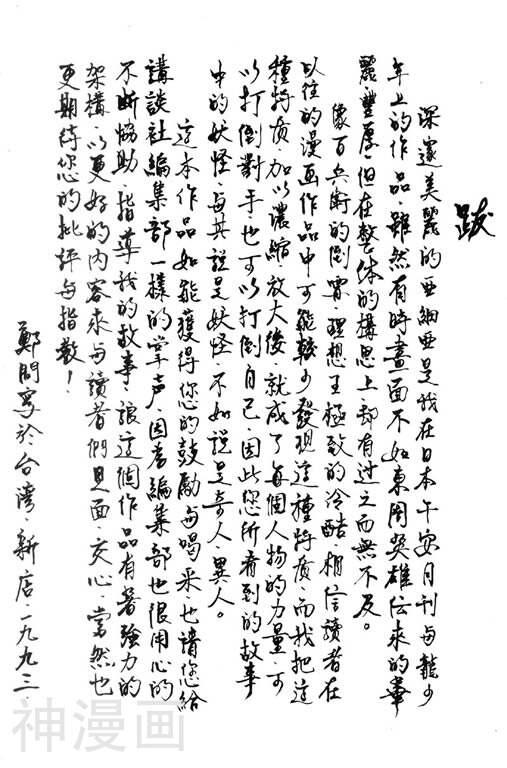 跋
深邃美麗的亞細亞是我在日本午安月刊每龍少
年上的作品。雖然有時畫面不如東周英雄伝來的華
麗豐厚。但在整体的構思上，却有过之而無不及。
像百兵衛的倒霄，理想王極致的冷酷，相信讀者在
以往的漫画作品中可能較少發現這種特质，而我把這
種特质加以濃縮，放大後，就成了每個人物的力量，可
以打倒對手也可以打倒自己，因此您所看到的故事
中的妖怪，与其說是妖怪，不如說是奇人，異人。
這本作品如能獲得您的鼓勵与喝采也請您給
講談社編集部一樣的掌声，因為編集部也很用心的
不断協助，指導我的故事，讓這個作品有著強力的
架構，以更好的內容來与讀者們見面，交心，當然也
更期待您的批評与指教！
鄭問寫於台灣．新店．一九九三
神漫画